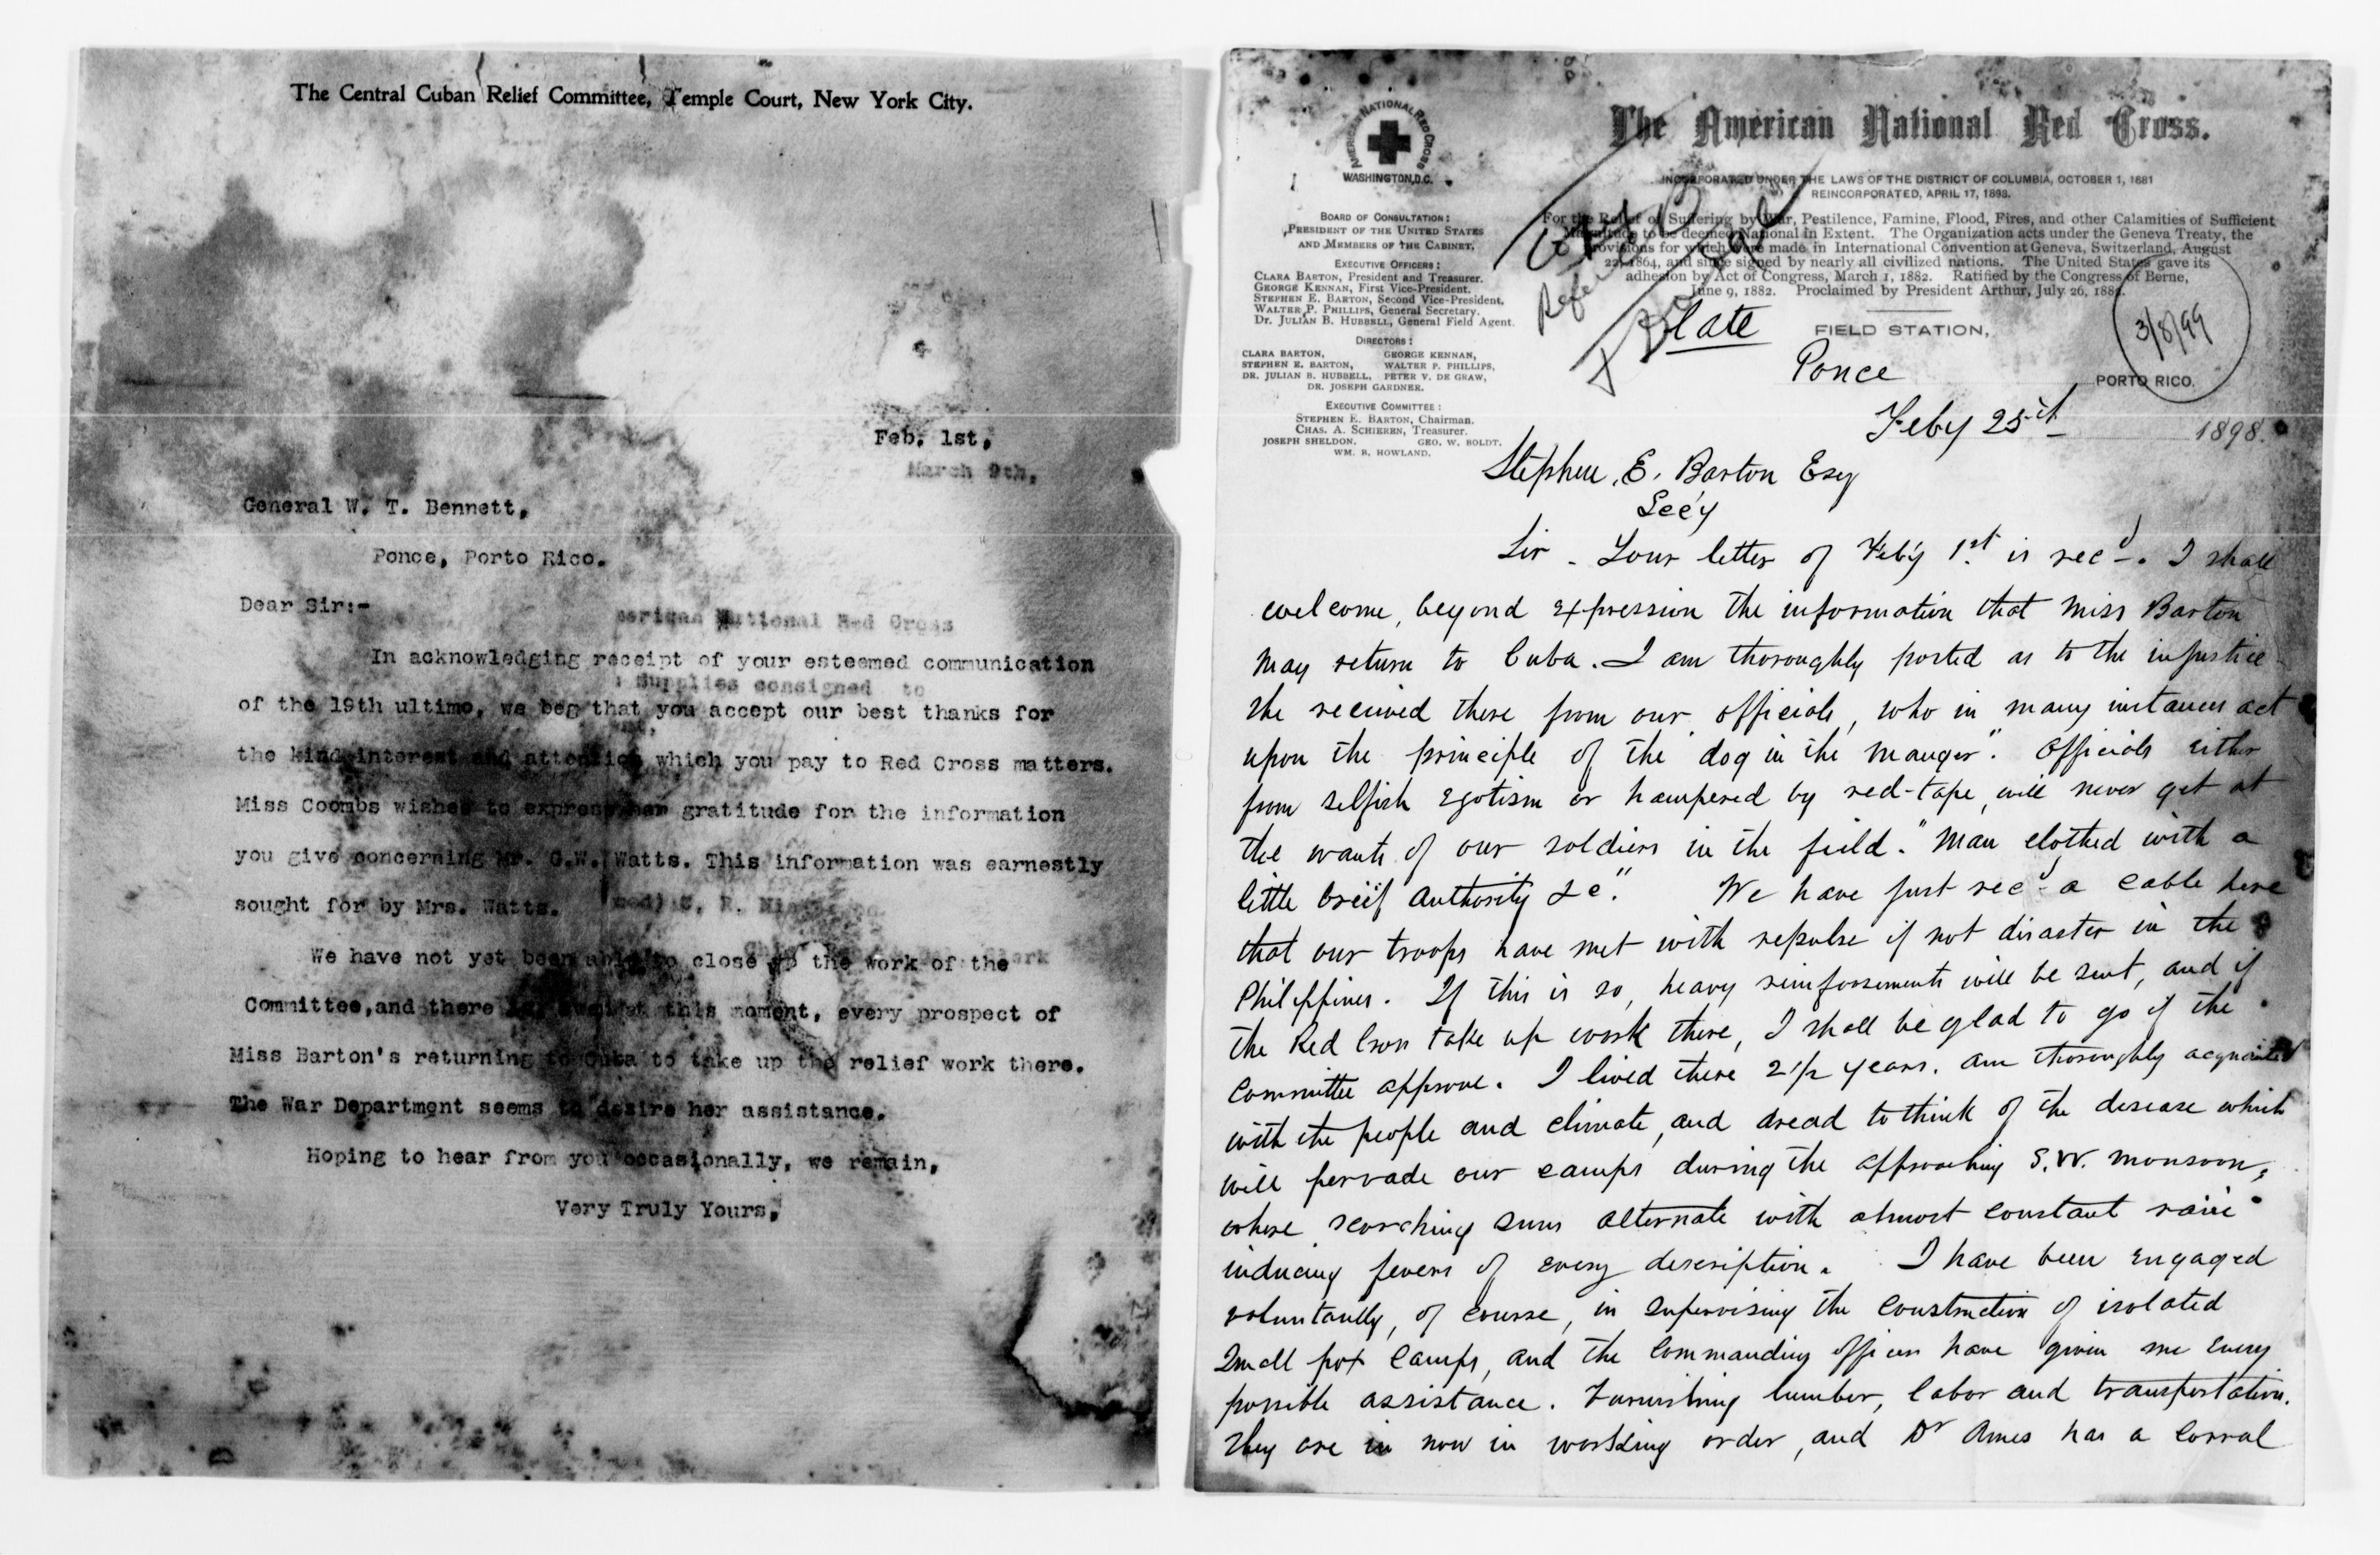 The Central Cuban Relief Committee, Temple Court, New York City.
Feb. 1st,
March 9th,
General W. T. Bennett,
Ponce, Porto Rico.
Dear Sir:-
merican National Red Cross
In acknowledging receipt of your esteemed communication
: Supplies consigned to
of the 19th ultimo, we beg that you accept our best thanks for
the kind interest and attention which you pay to Red Cross matters.
Miss Coombs wishes to express her gratitude for the information
you give concerning Mr. G.W. Watts. This information was earnestly
sought for by Mrs. Watts.
We have not yet been able to close up the work of the
Committee,and there is, at this moment, every prospect of
Miss Barton's returning to Cuba to take up the relief work there.
The War Department seems to desire her assistance.
Hoping to hear from you occasionally, we remain,
Very Truly Yours,
The American National Red Cross.
AMERICAN NATIONAL RED CROSS
WASHINGTON, D.C.
INCORPORATED UNDER THE LAWS OF THE DISTRICT OF COLUMBIA, OCTOBER 1, 1881
REINCORPORATED, APRIL 17, 1893.
For the Relief of Suffering by War, Pestilence, Famine, Flood, Fires, and other Calamities of Sufficient
Magnitude to be deemed National in Extent. The Organization acts under the Geneva Treaty, the
provisions for which were made in International Convention at Geneva, Switzerland, August
22, 1864, and since signed by nearly all civilized nations. The United States gave its
adhesion by Act of Congress, March 1, 1882. Ratified by the Congress of Berne,
June 9, 1882. Proclaimed by President Arthur, July 26, 1882.
BOARD OF CONSULTATION:
PRESIDENT OF THE UNITED STATES
AND MEMBERS OF THE CABINET.
EXECUTIVE OFFICERS:
CLARA BARTON, President and Treasurer.
GEORGE KENNAN, First Vice-President.
STEPHEN E. BARTON, Second Vice-President.
WALTER P. PHILLIPS, General Secretary.
Dr. JULIAN B. HUBBELL, General Field Agent.
DIRECTORS:
CLARA BARTON, GEORGE KENNAN,
STEPHEN E. BARTON, WALTER P. PHILLIPS,
DR. JULIAN B. HUBBELL, PETER V. DE GRAW,
DR. JOSEPH GARDNER.
EXECUTIVE COMMITTEE:
STEPHEN E. BARTON, Chairman.
CHAS. A. SCHIEREN, Treasurer.
JOSEPH SHELDON. GEO. W. BOLDT.
WM. B. HOWLAND.
late
FIELD STATION,
3/8/99
Ponce PORTO RICO.
Feby 25th 1898.
Stephen. E. Barton Esq
Sec'y
Sir - Your letter of Feby 1st is recd. I shall
welcome, beyond expression the information that Miss Barton
may return to Cuba. I am thoroughly posted as to the injustice
she received there from our officials, who in many instances act
upon the principle of the "dog in the manger". Officials either
from selfish egotism or hampered by red-tape, will never get at
the wants of our soldiers in the field. "Man clothed with a
little brief authority &c". We have just recd a cable here
that our troops have met with repulse if not disaster in the
Philippines. If this is so, heavy reinforcements will be sent, and if
the Red Cross take up work there, I shall be glad to go if the
Committee approve. I lived there 2 1/2 years. am thoroughly acquainted
with the people and climate, and dread to think of the disease which
will pervade our camps during the approaching S.W. monsoon,
where scorching suns alternate with almost constant rain
inducing fevers of every description. I have been engaged
voluntarily, of course, in supervising the construction of isolated
Small pox Camps, and the Commanding officers have given me every
possible assistance. Furnishing lumber, labor and transportation.
They are in now in working order, and Dr Ames has a Corral